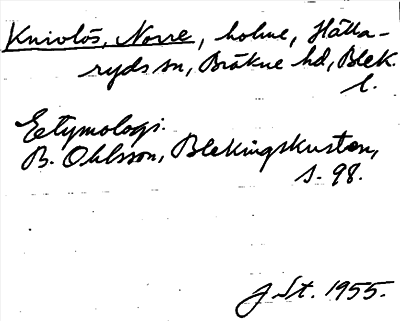 Knivlös, Norre, holme, Hälla-
ryds sn, Bräkne hd, Blek.
l.
Etymologi.
B. Ohlsson, Blekingskusten,
s. 98.
J St. 1955.